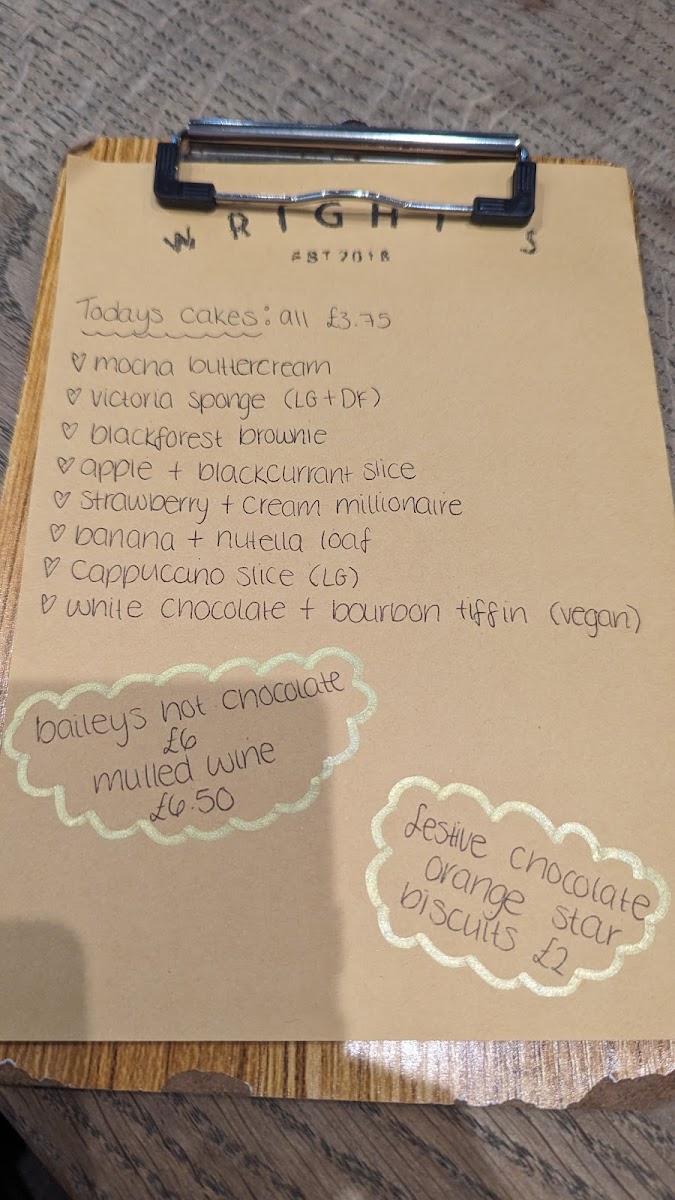 WRIGHTS
EST 2018
Todays cakes: all £3.75
♡ mocha buttercream
♡ victoria sponge (LG + DF)
♡ blackforest brownie
♡ apple + blackcurrant slice
♡ strawberry + cream millionaire
♡ banana + nutella loaf
♡ cappuccino slice (LG)
♡ white chocolate + bourbon tiffin (vegan)
baileys hot chocolate
£6
mulled wine
£6.50
festive chocolate
orange star
biscuits £2